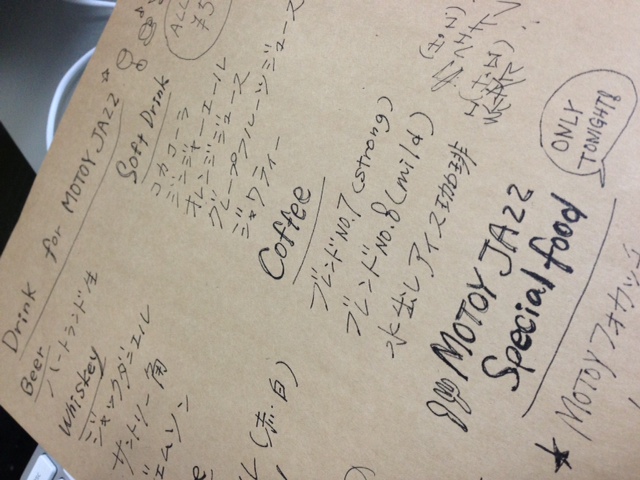 Drink for MOTOY JAZZ
Beer
ハートランド生
Whiskey
ジャックダニエル
サントリー角
エムソン
(赤・白)
ALL
¥5
Soft Drink
コカコーラ
ジンジャーエール
オレンジジュース
グレープフルーツジュース
ジャワティー
Coffee
ブレンドNO.7 (strong)
ブレンドNO.8 (mild)
水出しアイス珈琲
ONLY
TONIGHT!!
MOTOY JAZZ
Special food
★ MOTOYフォカッチ